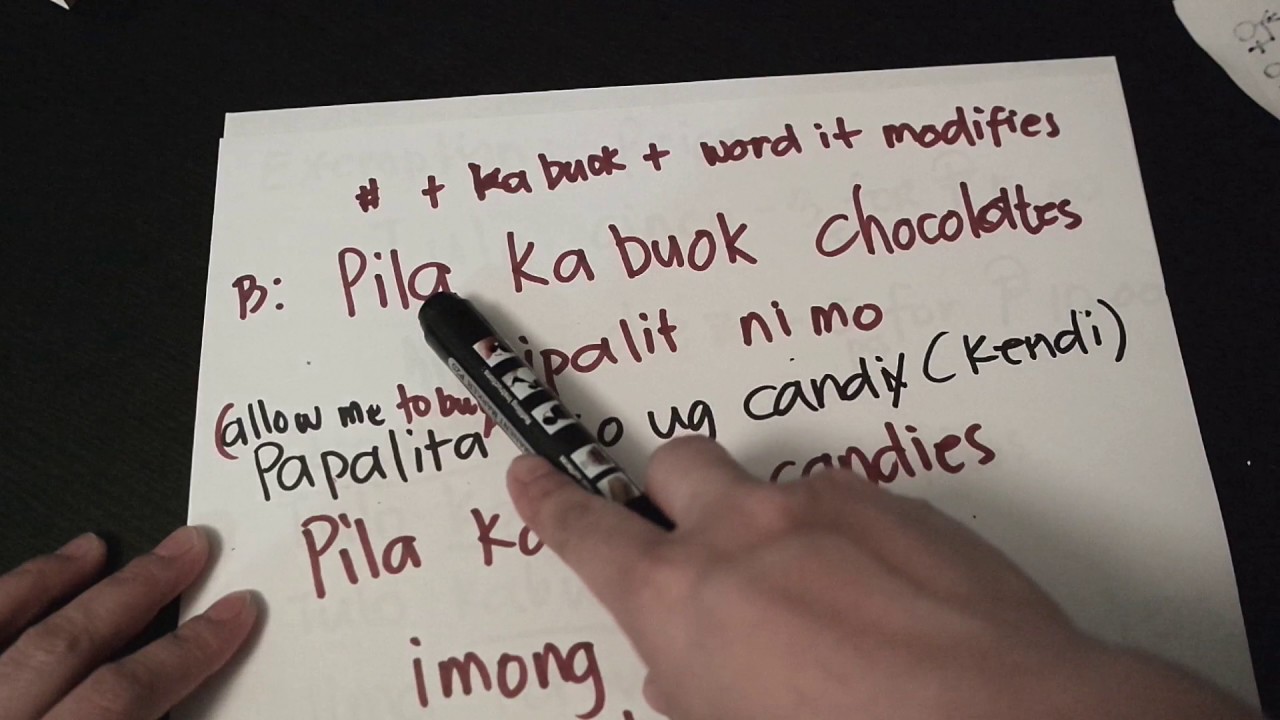 # + Ka buok + word it modifies
B: Pila Ka buok chocolates
nimo
(allow me to buy
Papalita ug candy (Kendi)
Pila candies
imong